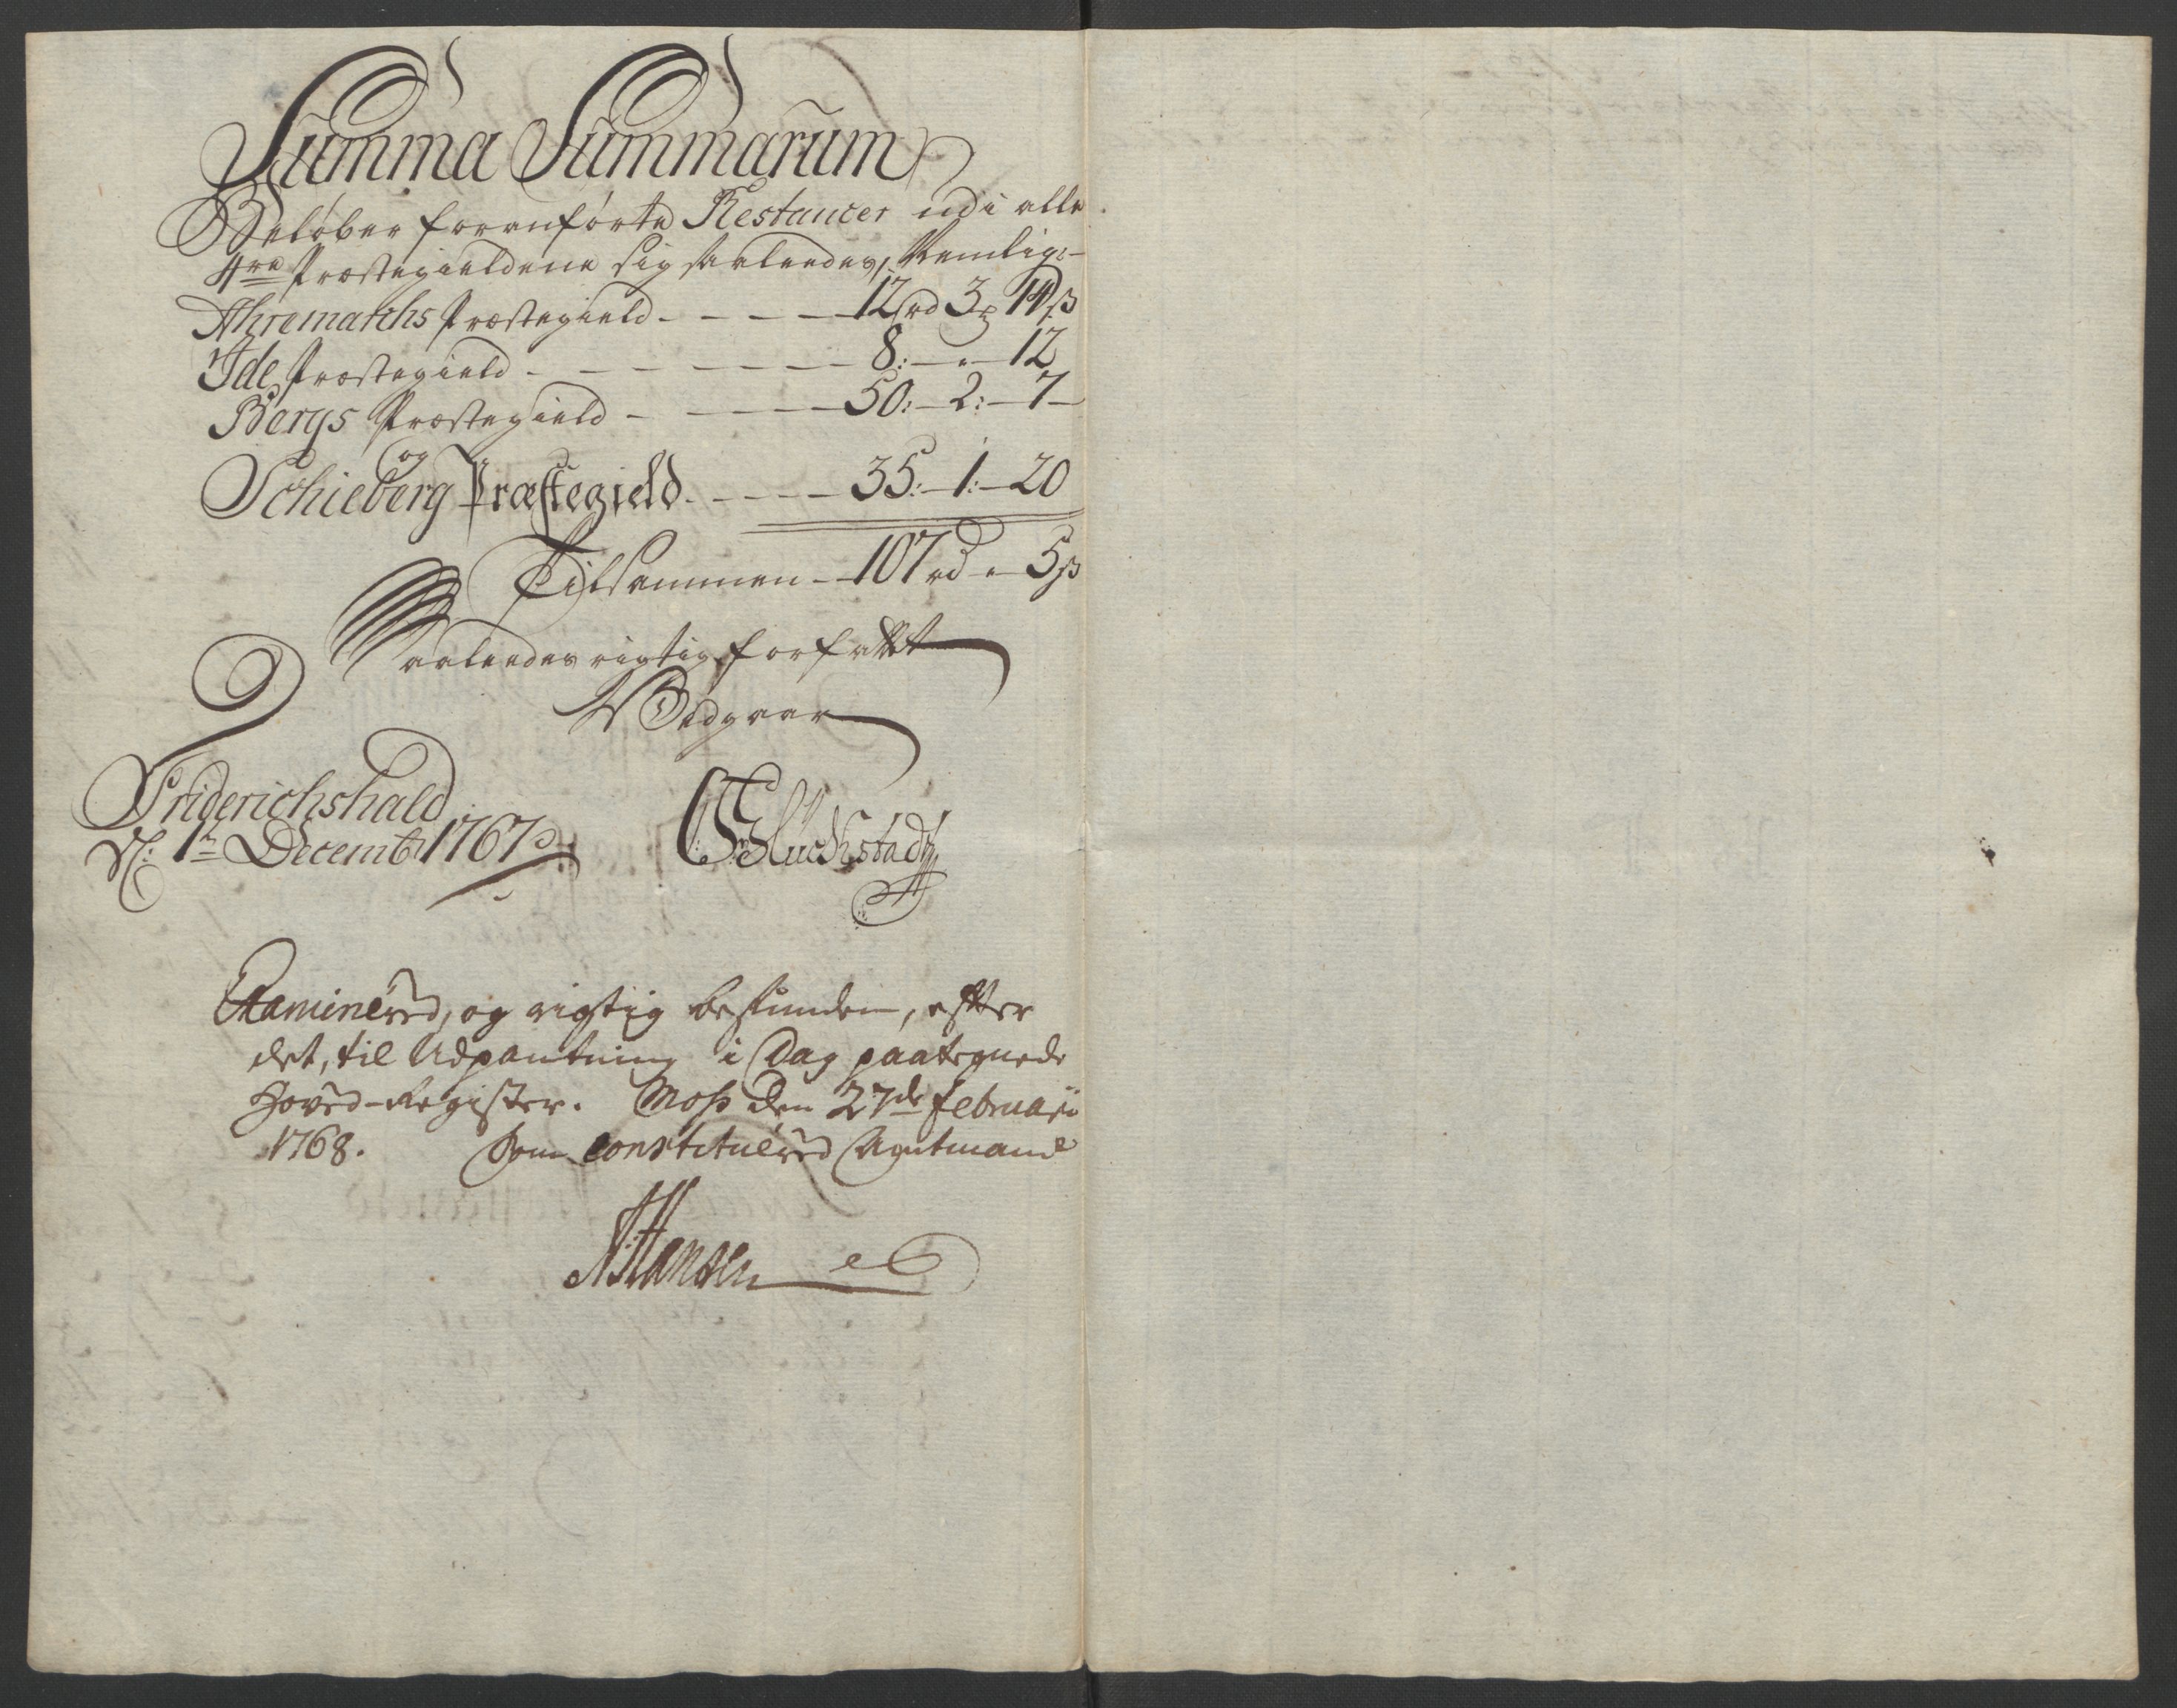 Summa Summarum
Beløber foranførte Restancer udi alle
4re Præstegieldene sig saaledes, Nemlig:-
Ahremarchs Præstegield - - - - - 12 rd 3 14 ß
Ide Præstegield - - - - - - - 8: - " - 12
Bergs Præstegield - - - - - 50: - 2: - 7 -
og
Schieberg Præstegield - - - - - 35: - 1: - 20
Tilsammen - 107 rd " 5 ß
Saaledes rigtig forfattet
Bedgaar
Friderichshald
d: 1te Decembr 1767
Glückstadt
Examinered, og rigtig befunden, efter
det, til Udpantning i Dag paategnede
Hoved-Register. Moss den 27de februarii
1768. Som Constituered Amtmand
N: Hansen